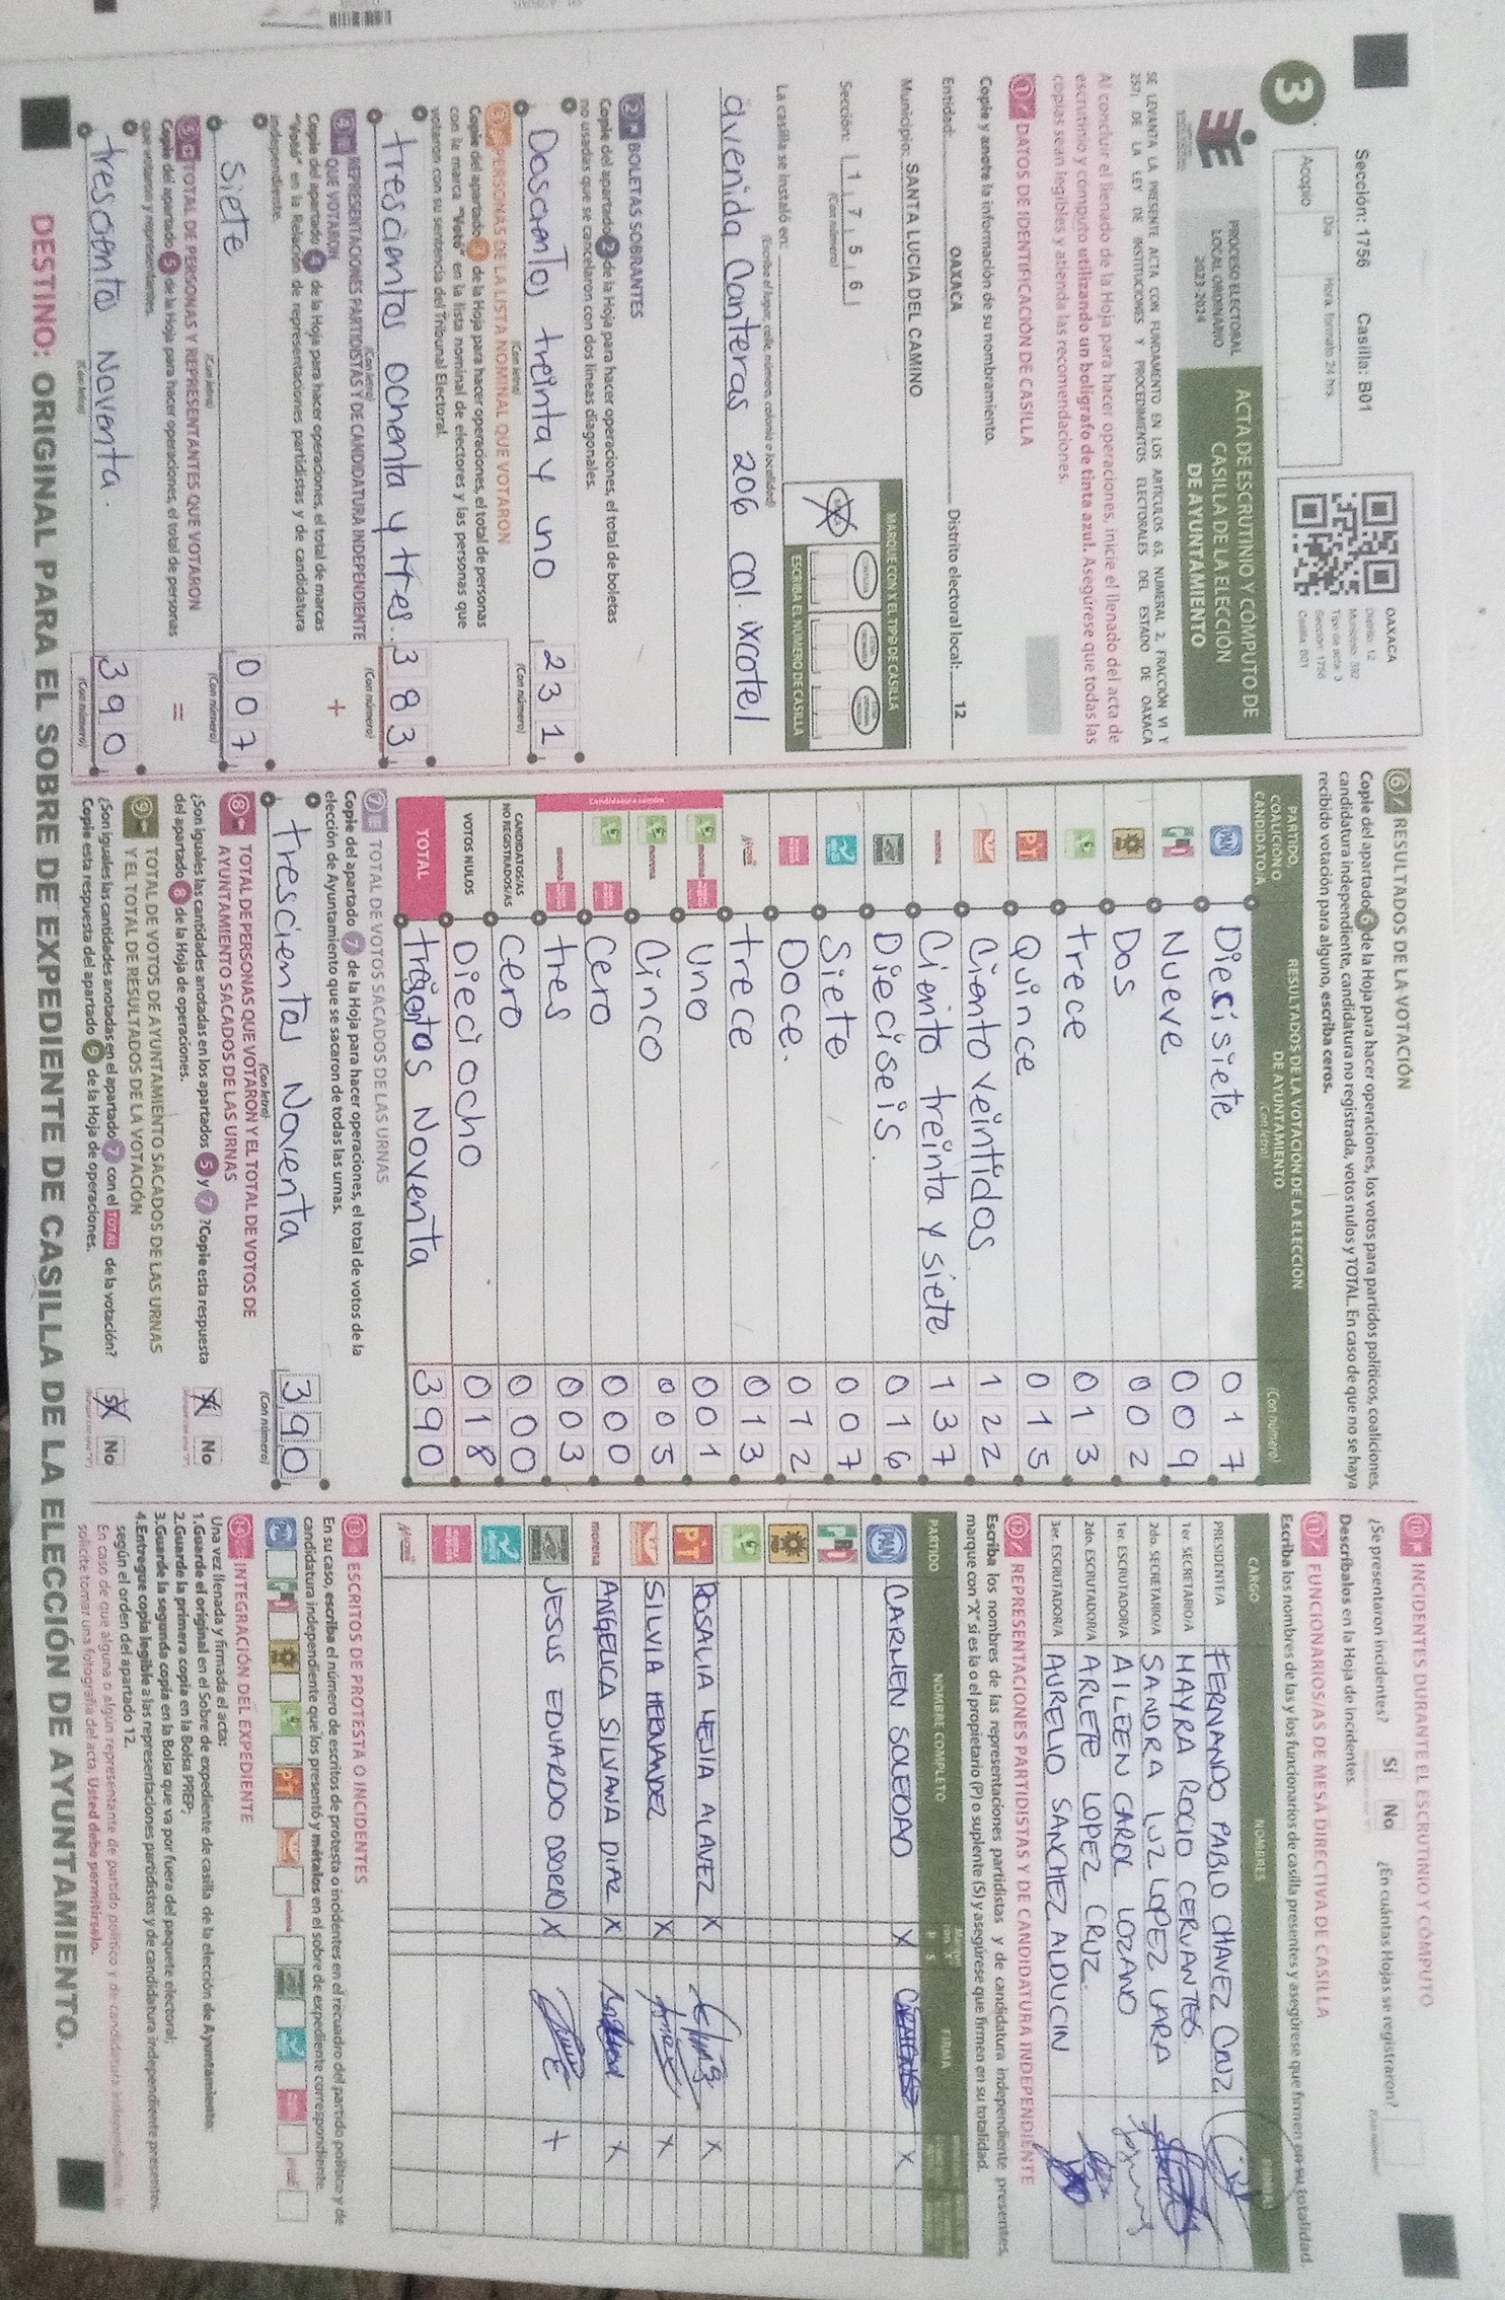 Sección: 1756 Casilla: B01
Día Hora, formato 24 hrs.
Acopio
OAXACA
Distrito: 12
Municipio: 392
Tipo de acta: 3
Sección: 1756
Casilla: B01
3
PROCESO ELECTORAL
LOCAL ORDINARIO
2023-2024
ACTA DE ESCRUTINIO Y CÓMPUTO DE
CASILLA DE LA ELECCIÓN
DE AYUNTAMIENTO
SE LEVANTA LA PRESENTE ACTA CON FUNDAMENTO EN LOS ARTÍCULOS 63, NUMERAL 2, FRACCIÓN VI Y
257; DE LA LEY DE INSTITUCIONES Y PROCEDIMIENTOS ELECTORALES DEL ESTADO DE OAXACA
Al concluir el llenado de la Hoja para hacer operaciones, inicie el llenado del acta de
escrutinio y cómputo utilizando un bolígrafo de tinta azul. Asegúrese que todas las
copias sean legibles y atienda las recomendaciones.
1 DATOS DE IDENTIFICACIÓN DE CASILLA
Copie y anote la información de su nombramiento.
Entidad: OAXACA Distrito electoral local: 12
Municipio: SANTA LUCIA DEL CAMINO
Sección: 1 7 5 6
(Con número)
MARQUE CON X EL TIPO DE CASILLA
ESCRIBA EL NÚMERO DE CASILLA
La casilla se instaló en:
(Escriba el lugar, calle, número, colonia o localidad)
avenida Canteras 206 Col. ixcotel
2 BOLETAS SOBRANTES
Copie del apartado 2 de la Hoja para hacer operaciones, el total de boletas
no usadas que se cancelaron con dos líneas diagonales.
Doscientos treinta y uno 231
(Con letra) (Con número)
3 PERSONAS DE LA LISTA NOMINAL QUE VOTARON
Copie del apartado 3 de la Hoja para hacer operaciones, el total de personas
con la marca "Votó" en la lista nominal de electores y las personas que
votaron con su sentencia del Tribunal Electoral.
trescientos ochenta y tres. 383
(Con letra) (Con número)
4 REPRESENTACIONES PARTIDISTAS Y DE CANDIDATURA INDEPENDIENTE
QUE VOTARON
+
Copie del apartado 4 de la Hoja para hacer operaciones, el total de marcas
"Votó" en la Relación de representaciones partidistas y de candidatura
independiente.
Siete 007
(Con letra) (Con número)
5 TOTAL DE PERSONAS Y REPRESENTANTES QUE VOTARON
=
Copie del apartado 5 de la Hoja para hacer operaciones, el total de personas
que votaron y representantes.
trescientos Noventa. 390
(Con letra) (Con número)
6 RESULTADOS DE LA VOTACIÓN
Copie del apartado 6 de la Hoja para hacer operaciones, los votos para partidos políticos, coaliciones,
candidatura independiente, candidatura no registrada, votos nulos y TOTAL. En caso de que no se haya
recibido votación para alguno, escriba ceros.
PARTIDO,
COALICIÓN O
CANDIDATO/A
RESULTADOS DE LA VOTACIÓN DE LA ELECCIÓN
DE AYUNTAMIENTO
(Con letra) (Con número)
PAN Diecisiete 017
PRI Nueve 009
PRD Dos 002
trece 013
PT Quince 015
Ciento veintidos 122
morena Ciento treinta y siete 137
Dieciseis. 016
Siete 007
Doce. 012
trece 013
Candidatura común
morena Uno 001
morena Cinco 005
Cero 000
morena tres 003
CANDIDATOS/AS
NO REGISTRADOS/AS Cero 000
VOTOS NULOS Dieciocho 018
TOTAL trescientos Noventa 390
7 TOTAL DE VOTOS SACADOS DE LAS URNAS
Copie del apartado 7 de la Hoja para hacer operaciones, el total de votos de la
elección de Ayuntamiento que se sacaron de todas las urnas.
trescientos Noventa 390
(Con letra) (Con número)
8 TOTAL DE PERSONAS QUE VOTARON Y EL TOTAL DE VOTOS DE
AYUNTAMIENTO SACADOS DE LAS URNAS
¿Son iguales las cantidades anotadas en los apartados 5 y 7 ? Copie esta respuesta
del apartado 8 de la Hoja de operaciones.
Sí No
9 TOTAL DE VOTOS DE AYUNTAMIENTO SACADOS DE LAS URNAS
Y EL TOTAL DE RESULTADOS DE LA VOTACIÓN
¿Son iguales las cantidades anotadas en el apartado 7 con el TOTAL de la votación?
Copie esta respuesta del apartado 9 de la Hoja de operaciones.
Sí No
10 INCIDENTES DURANTE EL ESCRUTINIO Y CÓMPUTO
¿Se presentaron incidentes? Sí No ¿En cuántas Hojas se registraron?
(Con número)
Descríbalos en la Hoja de incidentes.
11 FUNCIONARIOS/AS DE MESA DIRECTIVA DE CASILLA
Escriba los nombres de las y los funcionarios de casilla presentes y asegúrese que firmen en su totalidad.
CARGO NOMBRES FIRMAS
PRESIDENTE/A FERNANDO PABLO CHAVEZ CRUZ
1er. SECRETARIO/A MAYRA ROCIO CERVANTES.
2do. SECRETARIO/A SANDRA LUZ LOPEZ LARA
1er. ESCRUTADOR/A AILEEN CAROL LOZANO
2do. ESCRUTADOR/A ARLETE LOPEZ CRUZ.
3er. ESCRUTADOR/A AURELIO SANCHEZ ALDUCIN
12 REPRESENTACIONES PARTIDISTAS Y DE CANDIDATURA INDEPENDIENTE
Escriba los nombres de las representaciones partidistas y de candidatura independiente presentes,
marque con "X" si es la o el propietario (P) o suplente (S) y asegúrese que firmen en su totalidad.
PARTIDO NOMBRE COMPLETO P S FIRMA
PAN CARMEN SOLEDAD X X
PRI
PRD
PT ROSALIA MEJIA ALAVEZ X X
SILVIA HERNANDEZ X X
morena ANGELICA SILVANA DIAZ X X
JESUS EDUARDO OSORIO X X
13 ESCRITOS DE PROTESTA O INCIDENTES
En su caso, escriba el número de escritos de protesta o incidentes en el recuadro del partido político y de
candidatura independiente que los presentó y métalos en el sobre de expediente correspondiente.
14 INTEGRACIÓN DEL EXPEDIENTE
Una vez llenada y firmada el acta:
1.Guarde el original en el Sobre de expediente de casilla de la elección de Ayuntamiento;
2.Guarde la primera copia en la Bolsa PREP;
3.Guarde la segunda copia en la Bolsa que va por fuera del paquete electoral;
4.Entregue copia legible a las representaciones partidistas y de candidatura independiente presentes,
según el orden del apartado 12.
En caso de que alguna o algún representante de partido político y de candidatura independiente, le
solicite tomar una fotografía del acta. Usted debe permitírselo.
DESTINO: ORIGINAL PARA EL SOBRE DE EXPEDIENTE DE CASILLA DE LA ELECCIÓN DE AYUNTAMIENTO.